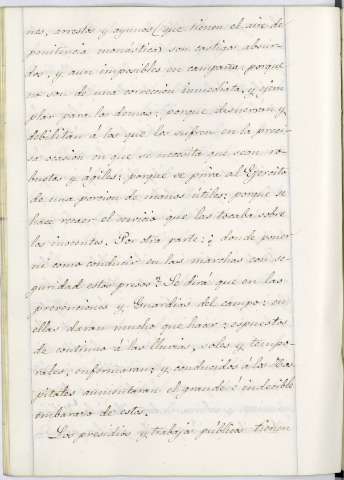 nes, arrestos y ayunos (que tienen el aire de
penitencia monástica) son castigos absur-
dos, y aun imposibles en campaña: porque
no son de una correccion inmediata, y ejem
plar para los demas: porque desnervan y
debilitan á los que los sufren en la preci-
sa ocasion en que se necesita que sean ro-
bustos y ágiles: porque se priva al Ejercito
de una porcion de manos útiles: porque se
hace recaer el servicio que les tocaba sobre
los inocentes. Por otra parte: ¿donde poner
ni como conducir en las marchas con se-
guridad estos presos? Se dirá que en las
prevenciones y Guardias del campo: en
ellas daran mucho que hacer: espuestos
de continuo á las lluvias, soles y tempo-
rales, enfermaran; y conducidos á los Hos
pitales aumentaran el grande é indecible
embarazo de estos.
Los presidios y trabajos públicos tienen